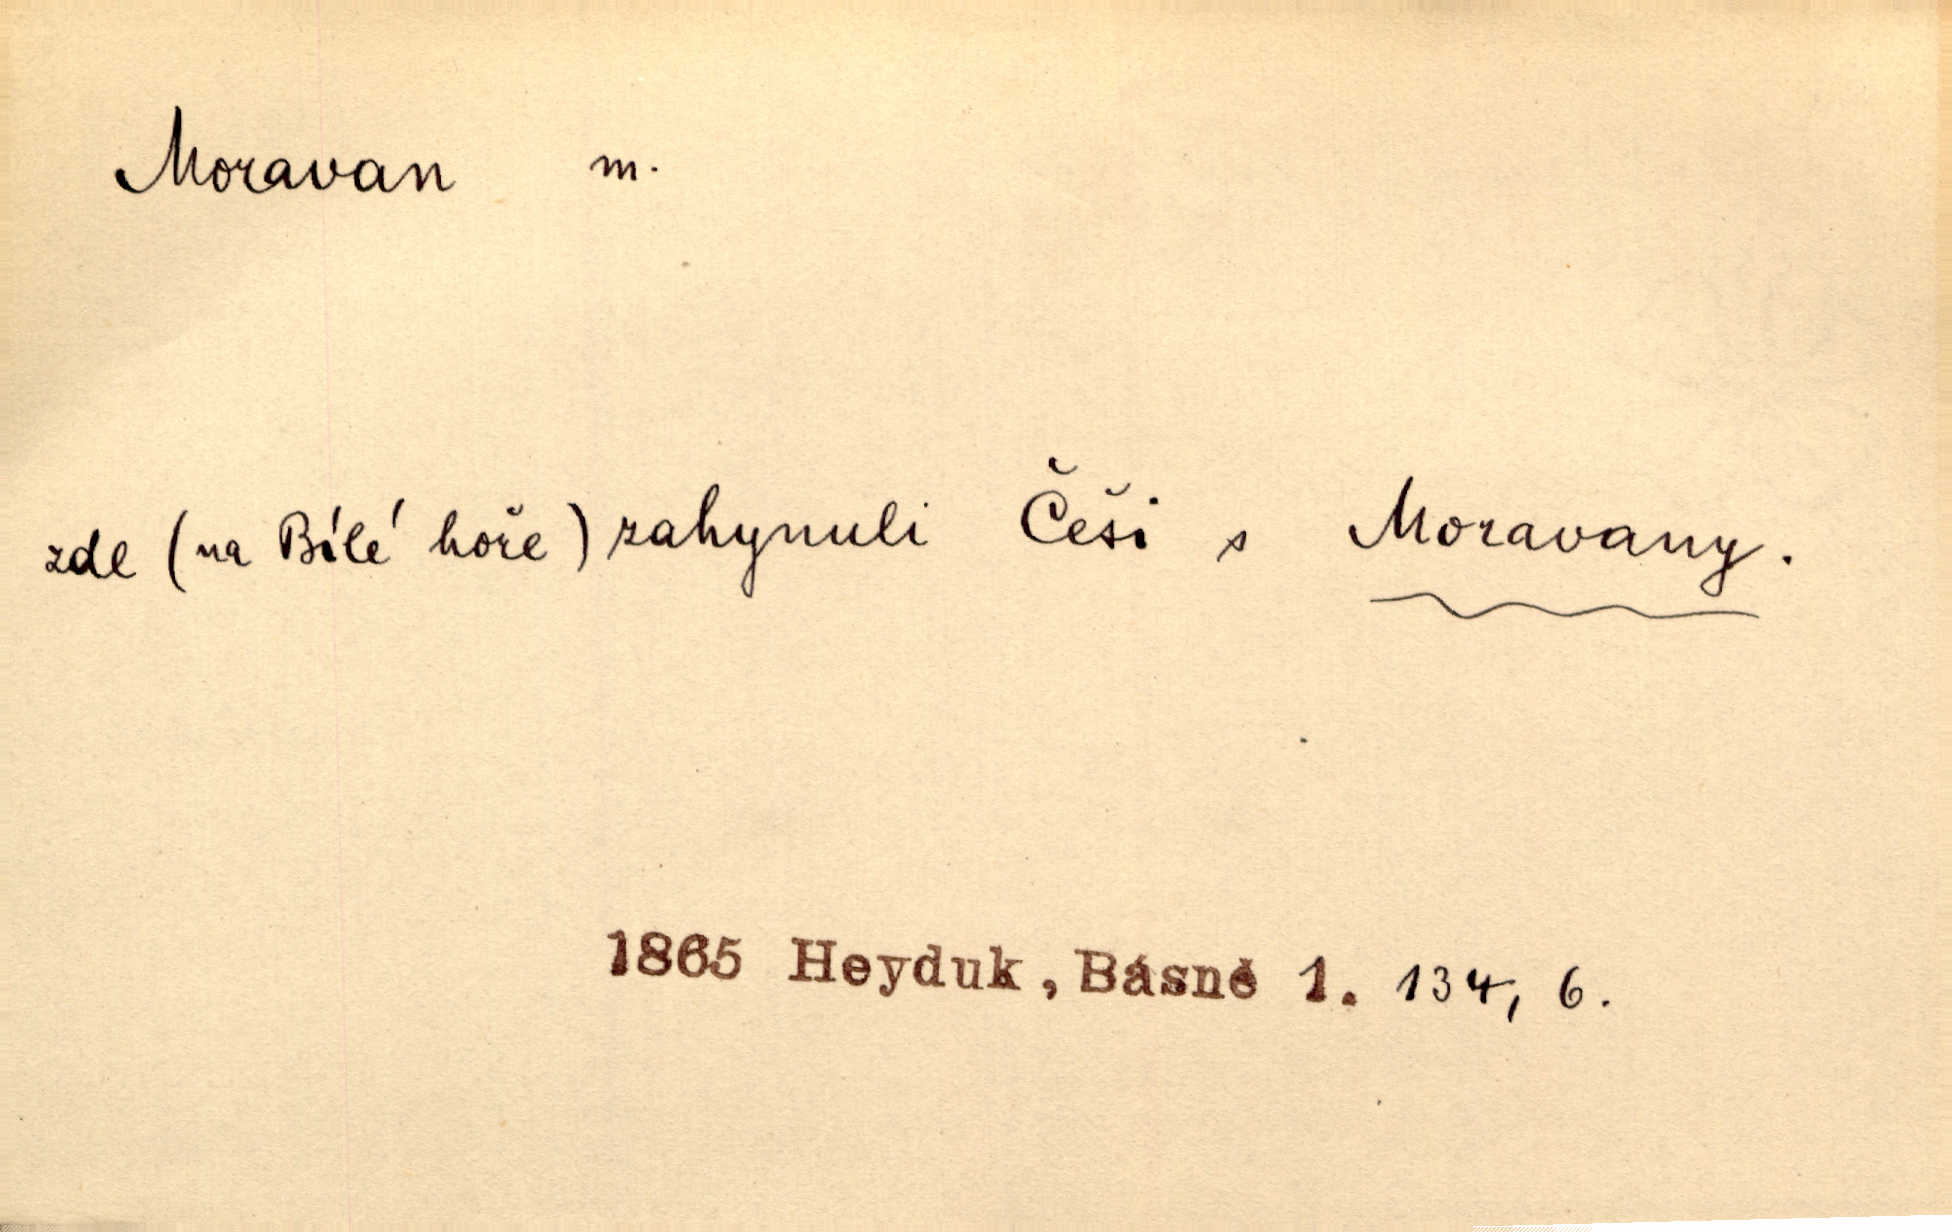 Moravan m.
zde (na Bílé hoře) zahynuli Češi s Moravany.
1865 Heyduk, Básně 1. 134, 6.